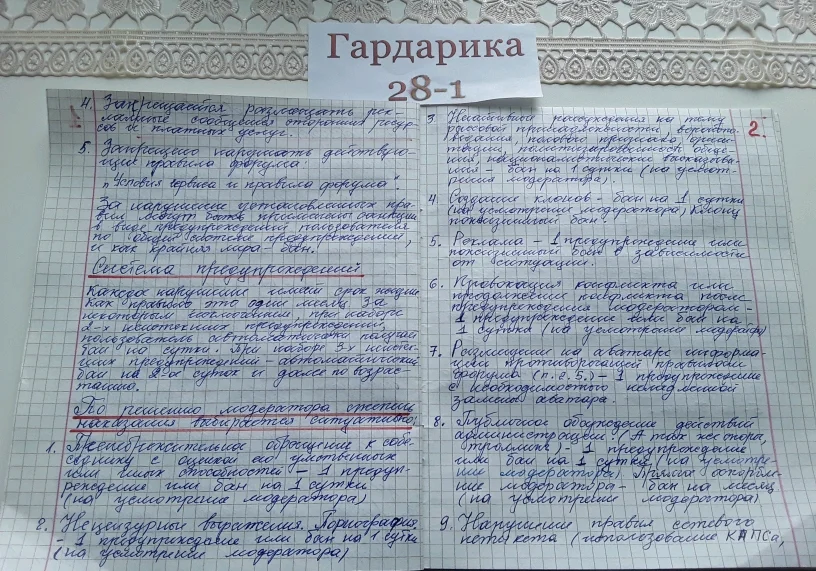 Гардарика
28-1
1.
4. Запрещается размещать рек-
ламные сообщения сторонних ресур-
сов и платных услуг.
5. Запрещено нарушать действую-
щие правила форума:
"Условия сервиса и правила форума".
За нарушение установленных пра-
вил могут быть применены санкции
в виде предупреждений пользователя
по общей системе предупреждений,
и как крайняя мера - бан.
Система предупреждений
Каждое нарушение имеет срок
как правило это один месяц. За
некоторым исключением, при наборе
2-х неистекших предупреждений,
пользователь автоматически получает
бан на сутки. При наборе 3х неистек-
ших предупреждений - автоматический
бан на 2-е суток и далее по возрас-
танию.
По решению модератора степень
наказания выбирается ситуативно:
1. Пренебрежительное обращение к собе-
седнику с оценкой его умственных
или иных способностей - 1 преду-
реждение или бан на 1 сутки
(на усмотрение модератора)
2. Нецензурные выражения. Порнография.
- 1 предупреждение или бан на 1 сутки
(на усмотрение модератора)
2.
3. Негативные рассуждения на тему
рассовой принадлежности, вероиспо-
ведания, полового признака, ориен-
тации, политизированность обще-
ния, националистические высказыва-
ния - бан на 1 сутки (на усмот-
рения модератора).
4. Создание клонов - бан на 1 сутки
(на усмотрение модератора) Клону
пожизненный бан.
5. Реклама - 1 предупреждение или
пожизненный бан в зависимости
от ситуации.
6. Провокация конфликта или
продолжение конфликта после
предупреждения модератором -
1 предупреждение или бан на
1 сутки (на усмотрение модератора)
7. Размещение на аватаре информа-
ции противоречащей правилам
форума (п.г. 5.) - 1 предупреждение
с необходимостью немедленной
замены аватара.
8. Публичное обсуждение действий
администрации. (А так же споры,
троллинг) - 1 предупреждение
или бан на 1 сутки (на усмотре-
ние модератора). Прямое оскорбле-
ние модератора - бан на месяц
(на усмотрение модератора)
9. Нарушение правил сетевого
нетикета (использование КАПСа,